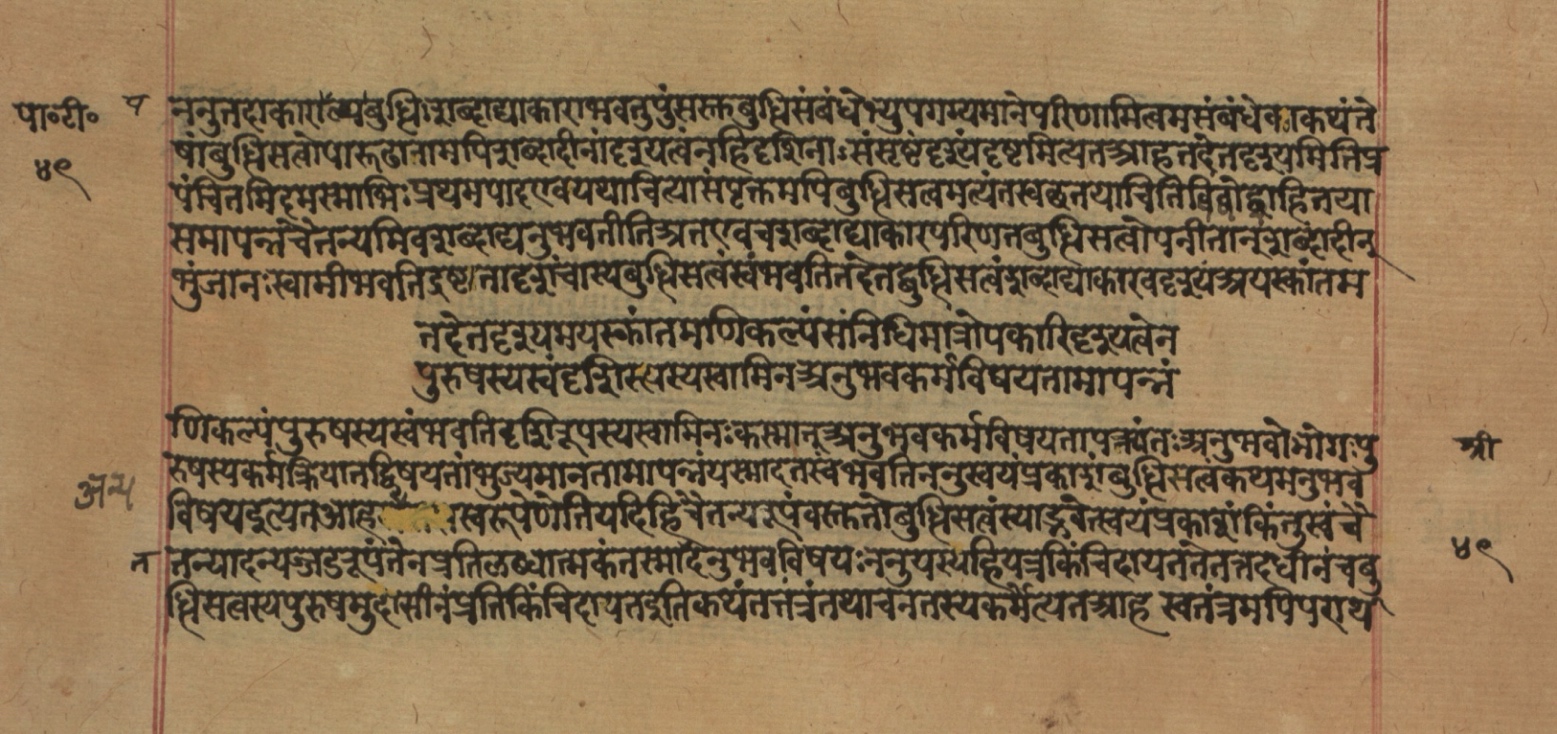 पा॰टी॰
४९
प
ननुतदाकाराव्यबुद्धिःशब्दाद्याकाराभवतुपुंसस्तुबुद्धिसंबंधेभ्युपगम्यमानेपरिणामित्वमसंबंधेवाकथंते
षांबुद्धिसत्वोपारूढानामपिशब्दादीनांदृश्यत्वंनहिदृशिनाःसंसृष्टंदृश्यंदृष्टमित्यतआहतदेतदृश्यमितिप्र
पंचितमिदमस्माभिःप्रथमपादएवयथाचित्यासंपृक्तमपिबुद्धिसत्वमत्यंतस्वछतयाचितिबिंबोद्ग्राहितया
समापन्नंचैतन्यमिवशब्दाद्यनुभवतीतिअतएवचशब्दाद्याकारपरिणतबुद्धिसत्वोपनीतान्शब्दादीन्
भुंजानःस्वामीभवतिद्रष्टातादृशंचास्यबुद्धिसत्वंस्वंभवतितदेतद्बुद्धिसत्वंशब्दाद्याकारवदृश्यंअयस्कांतम
तदेतदृश्यमयस्कांतमणिकल्पंसंनिधिमात्रोपकारिदृश्यत्वेन
पुरुषस्यस्वंदृशिरूपस्यस्वामिनअनुभवकर्मविषयतामापन्नं
णिकल्पंपुरुषस्यस्वंभवतिदृशिरूपस्यस्वामिनःकस्मात्अनुभवकर्मविषयतापन्नंयतःअनुभवोभोगःपु
रुषस्यकर्मक्रियातद्विषयतांभुज्यमानतामापन्नंयस्मादतस्वंभवतिननुस्वयंप्रकाशंबुद्धिसत्वंकथमनुभव
विषयइत्यतआह स्वरूपेणेतियदिहिचैतन्यरूपंवस्तुतोबुद्धिसत्वंस्याद्भवेत्स्वयंप्रकाशंकिंतुस्वंचै
तन्यादन्यज्जडरूपंतेनप्रतिलब्धात्मकंतस्मादनुभवविषयःननुयस्यहियत्रकिंचिदायततेतत्तदधीनंचबु
द्धिसत्वस्यपुरुषमुदासीनंप्रतिकिंचिदायततइतिकथंतत्तंत्रंतथाचनतस्यकर्मेत्यतआह स्वतंत्रमपिपरार्थ
अन्य
त
श्री
४९